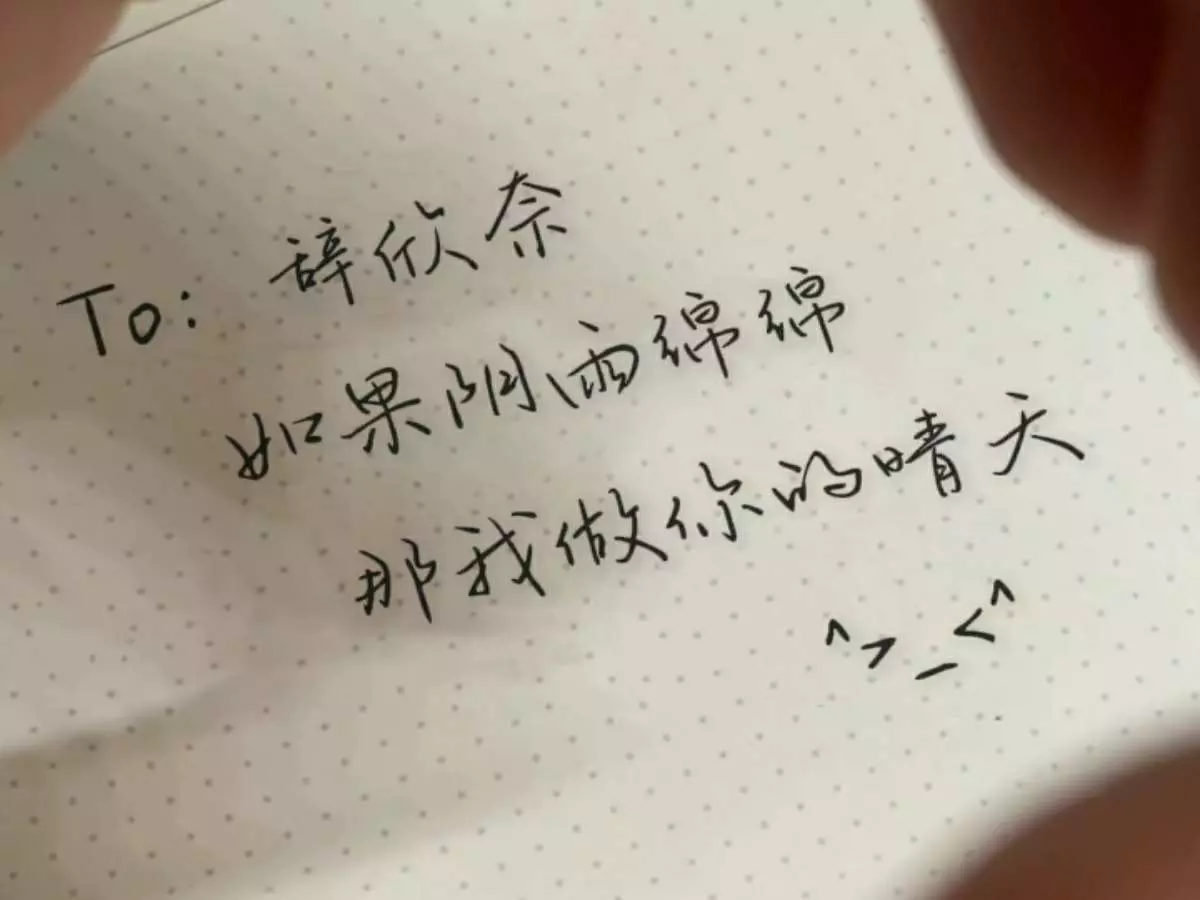 To: 辞欣奈
如果阴雨绵绵
那我做你的晴天
^>_<^